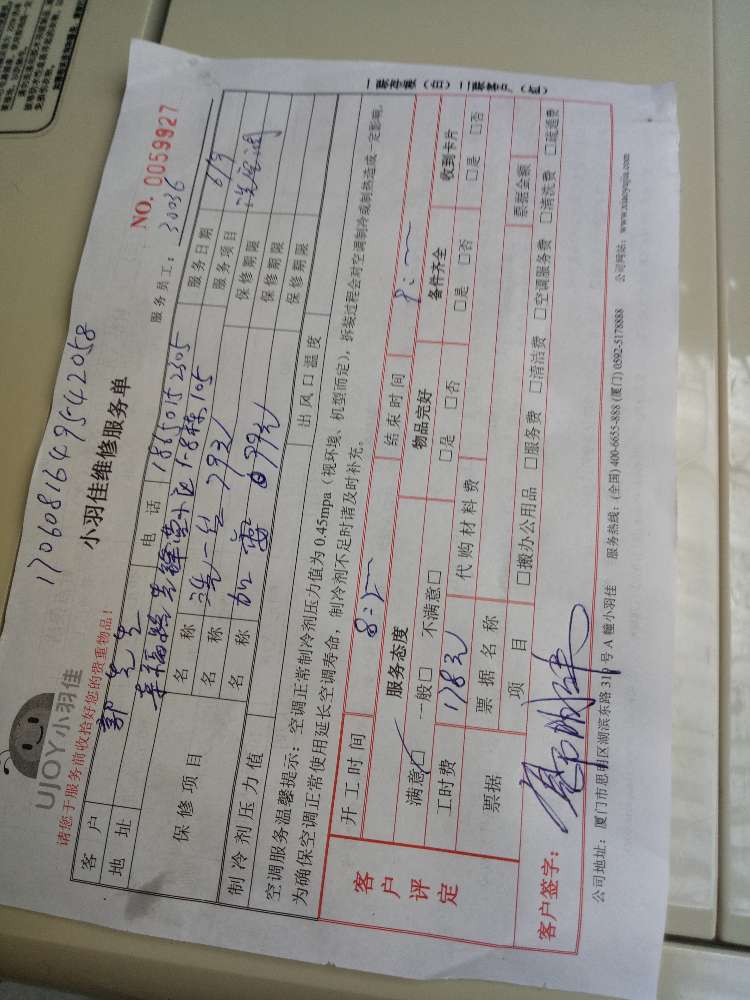 170608164954 2058
UJOY小羽佳
小羽佳维修服务单
NO. 0059927
请您于服务前收拾好您的贵重物品！
服务员工：30036
客户 郭先生 电话 18650152305 服务日期 6/9
地址 幸福路 小区1-8栋105 服务项目 洗空调
保修项目
名称 洗一 79元 保修期限
名称 保修期限
名称 加雪 99元 保修期限
制冷剂压力值 出风口温度
空调服务温馨提示：空调正常制冷剂压力值为 0.45mpa（视环境、机型而定），拆装过程会对空调制冷或制热造成一定影响，
为确保空调正常使用延长空调寿命，制冷剂不足时请及时补充。
客户评定
开工时间 结束时间
服务态度 物品完好 备件齐全 收到卡片
满意□ 一般□ 不满意□ □是 □否 □是 □否 □是 □否
工时费 178元 代购材料费
票据 票据名称 票据金额
项目 □搬办公用品 □服务费 □清洁费 □空调服务费 □清洗费 □疏通费
客户签字：
公司地址：厦门市思明区湖滨东路 319 号 A 幢小羽佳 服务热线：(全国) 400-6655-888 (厦门) 0592-5178888 公司网站：www.xiaoyujia.com
一联存根（白）二联客户（红）